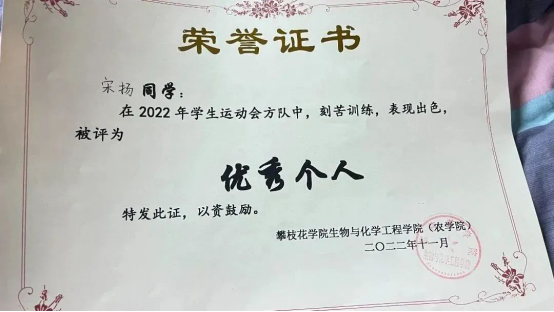 荣誉证书
宋扬 同学：
在 2022 年学生运动会方队中，刻苦训练，表现出色，
被评为
优秀个人
特发此证，以资鼓励。
攀枝花学院生物与化学工程学院（农学院）
二〇二二年十一月